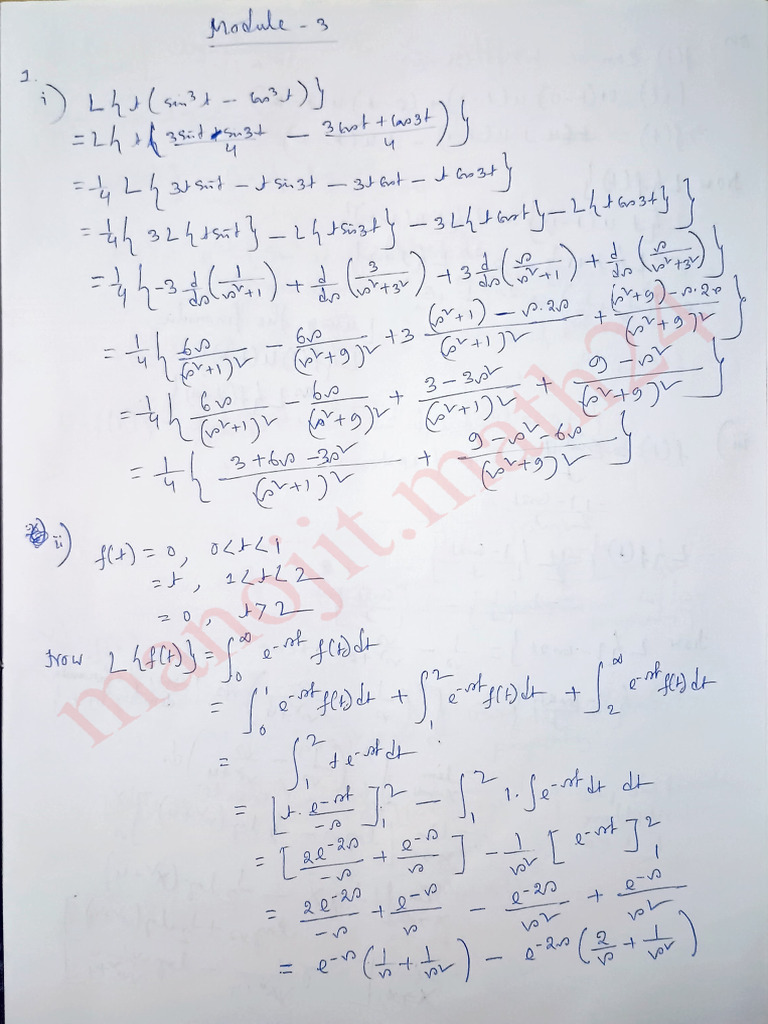 Module - 3
1.
i) L{t(sin³t - cos³t)}
= L{t(3sint - sin3t/4 - 3cost + cos3t/4)}
= 1/4 L{3tsint - tsin3t - 3tcost - tcos3t}
= 1/4{3L{tsint} - L{tsin3t} - 3L{tcost} - L{tcos3t}}
= 1/4{-3 d/ds(1/s²+1) + d/ds(3/s²+3²) + 3 d/ds(s/s²+1) + d/ds(s/s²+3²)}
= 1/4{6s/(s²+1)² - 6s/(s²+9)² + 3 (s²+1) - s·2s/(s²+1)² + (s²+9) - s·2s/(s²+9)²}
= 1/4{6s/(s²+1)² - 6s/(s²+9)² + 3 - 3s²/(s²+1)² + 9 - s²/(s²+9)²}
= 1/4{3 + 6s - 3s²/(s²+1)² + 9 - s² - 6s/(s²+9)²}
ii) f(t) = 0, 0<t<1
= t, 1<t<2
= 0, t>2
Now L{f(t)} = ∫₀^∞ e^-st f(t)dt
= ∫₀^1 e^-st f(t)dt + ∫₁^2 e^-st f(t)dt + ∫₂^∞ e^-st f(t)dt
= ∫₁^2 t e^-st dt
= [t· e^-st/-s]₁^2 - ∫₁^2 1·∫e^-st dt dt
= [2e^-2s/-s + e^-s/s] - 1/s² [e^-st]₁^2
= 2e^-2s/-s + e^-s/s - e^-2s/s² + e^-s/s²
= e^-s(1/s + 1/s²) - e^-2s(2/s + 1/s²)
manojit.math24